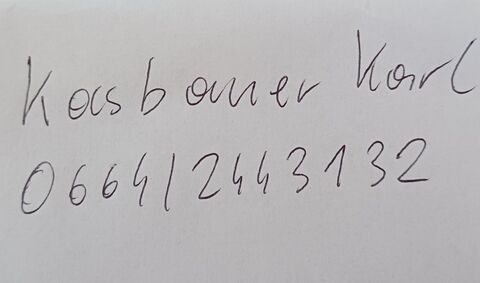 Kasbauer Karl
0664/2443132